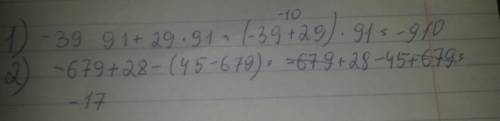 -10
1) -39 91 + 29 · 91 = (-39 + 29) · 91 = -910
2) -679 + 28 - (45 - 679) = -679 + 28 - 45 + 679 =
-17